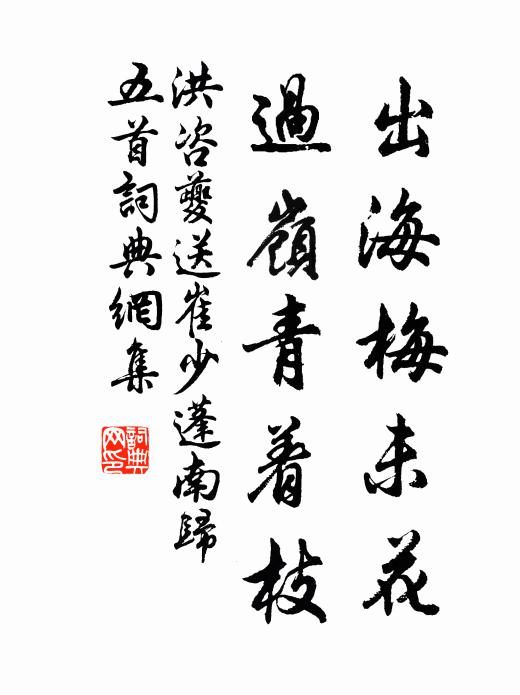 出海梅未花
過嶺青着枝
洪咨夔送崔少蓬南歸
五首詞典網集
詞典網印